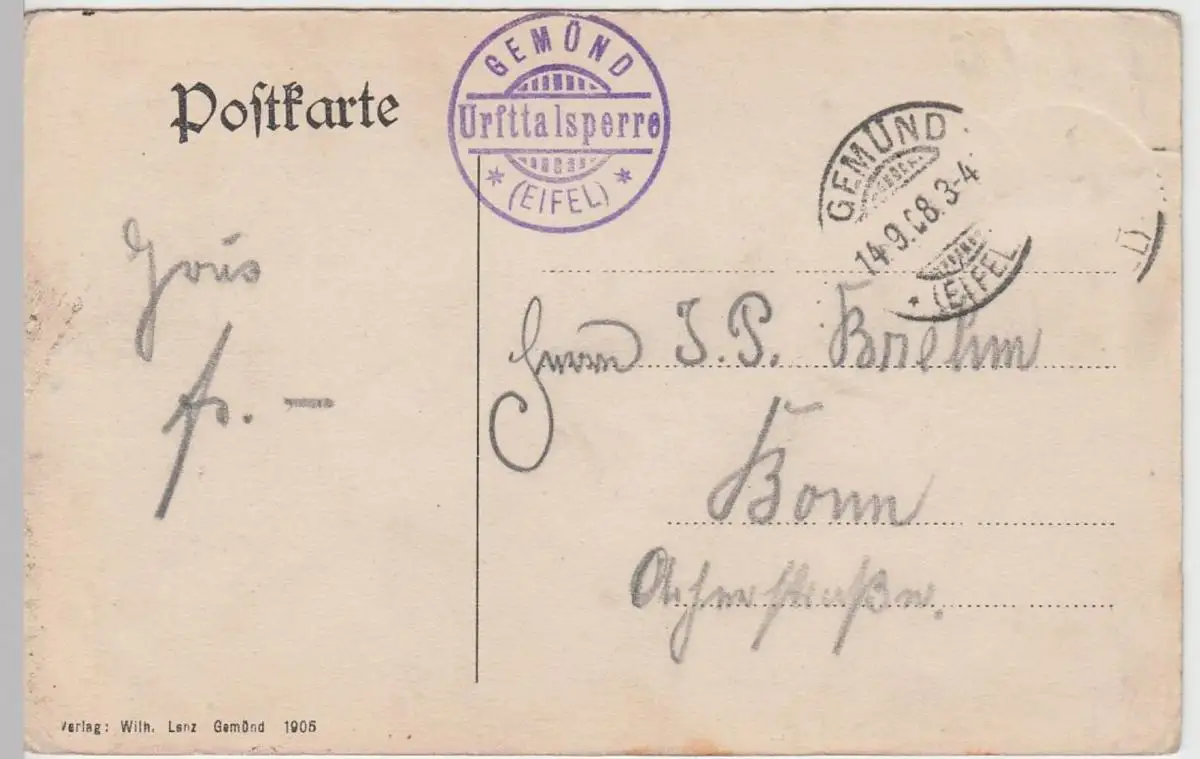 Postkarte
GEMÜND
Urfttalsperre
* (EIFEL) *
GEMÜND
14.9.08.3-4
* (EIFEL
Gruß
Herrn J. P. Briehm
Bonn
Acherstraße.
Verlag: Wilh. Lenz Gemünd 1905